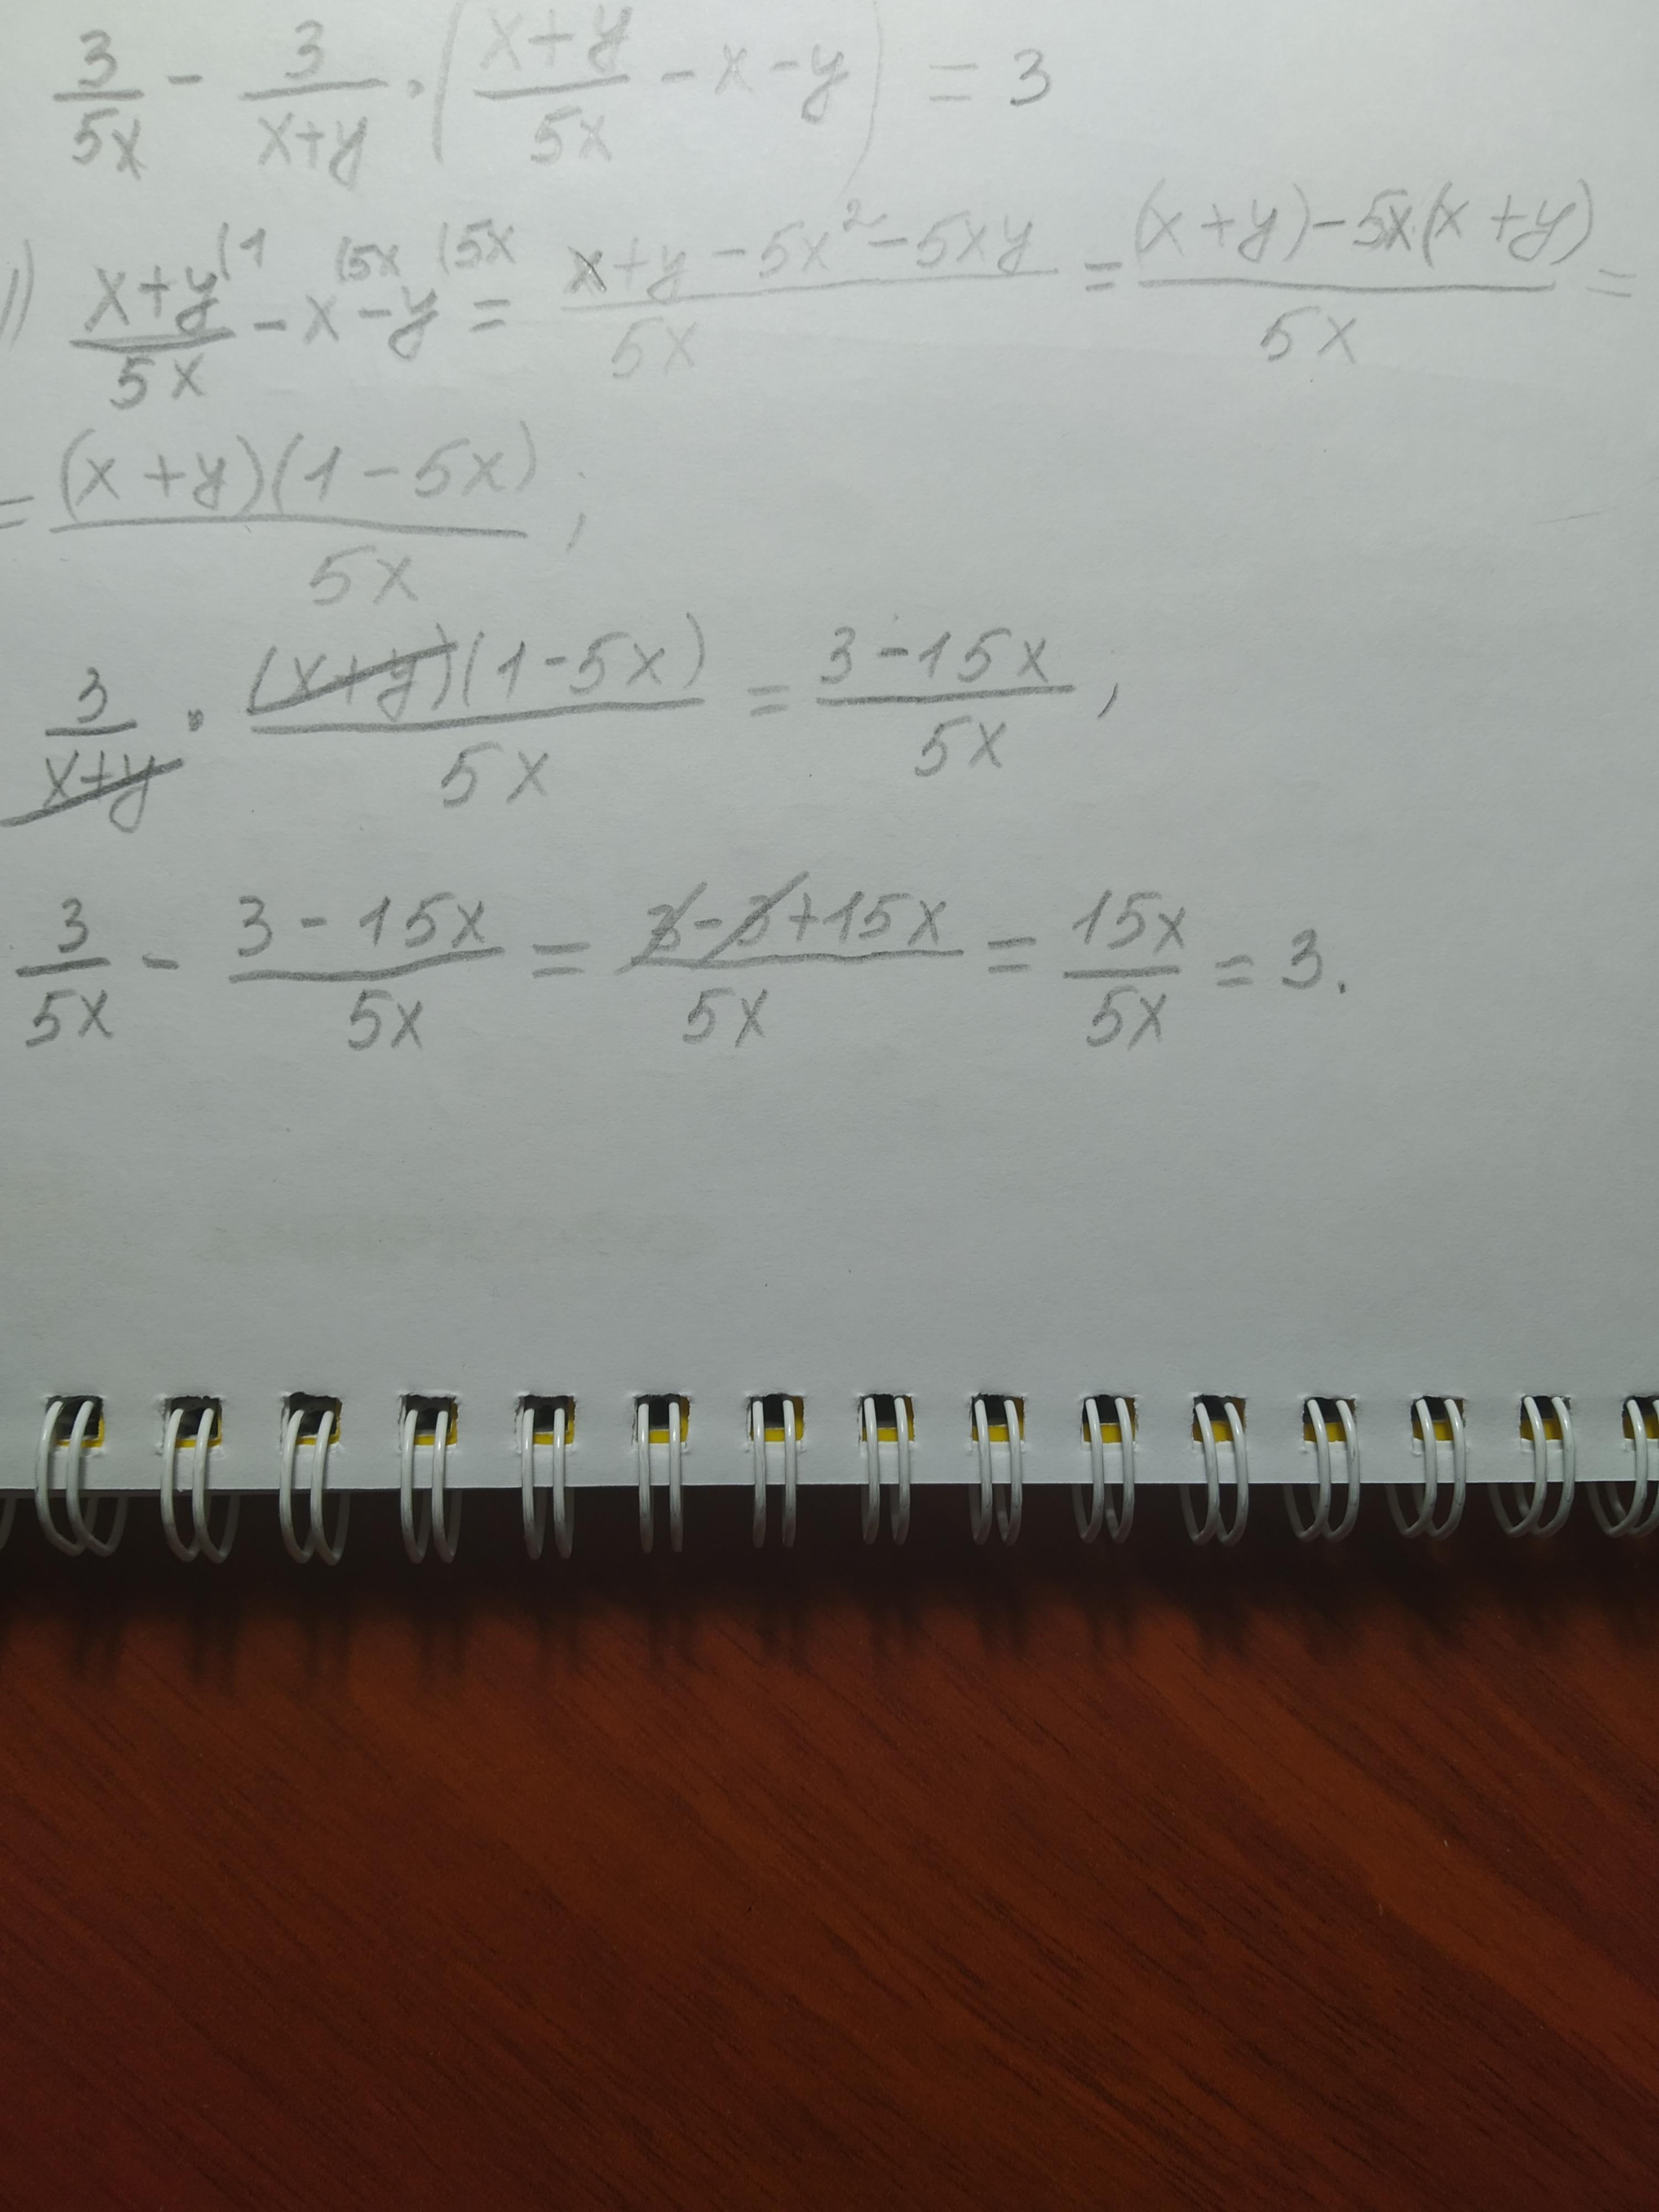 3/5x - 3/x+y · (x+y/5x - x - y) = 3
1) x+y/5x (1 - x (5x - y (5x = x+y-5x²-5xy/5x = (x+y)-5x(x+y)/5x =
= (x+y)(1-5x)/5x ;
3/x+y · (x+y)(1-5x)/5x = 3-15x/5x ,
3/5x - 3-15x/5x = 3-3+15x/5x = 15x/5x = 3.